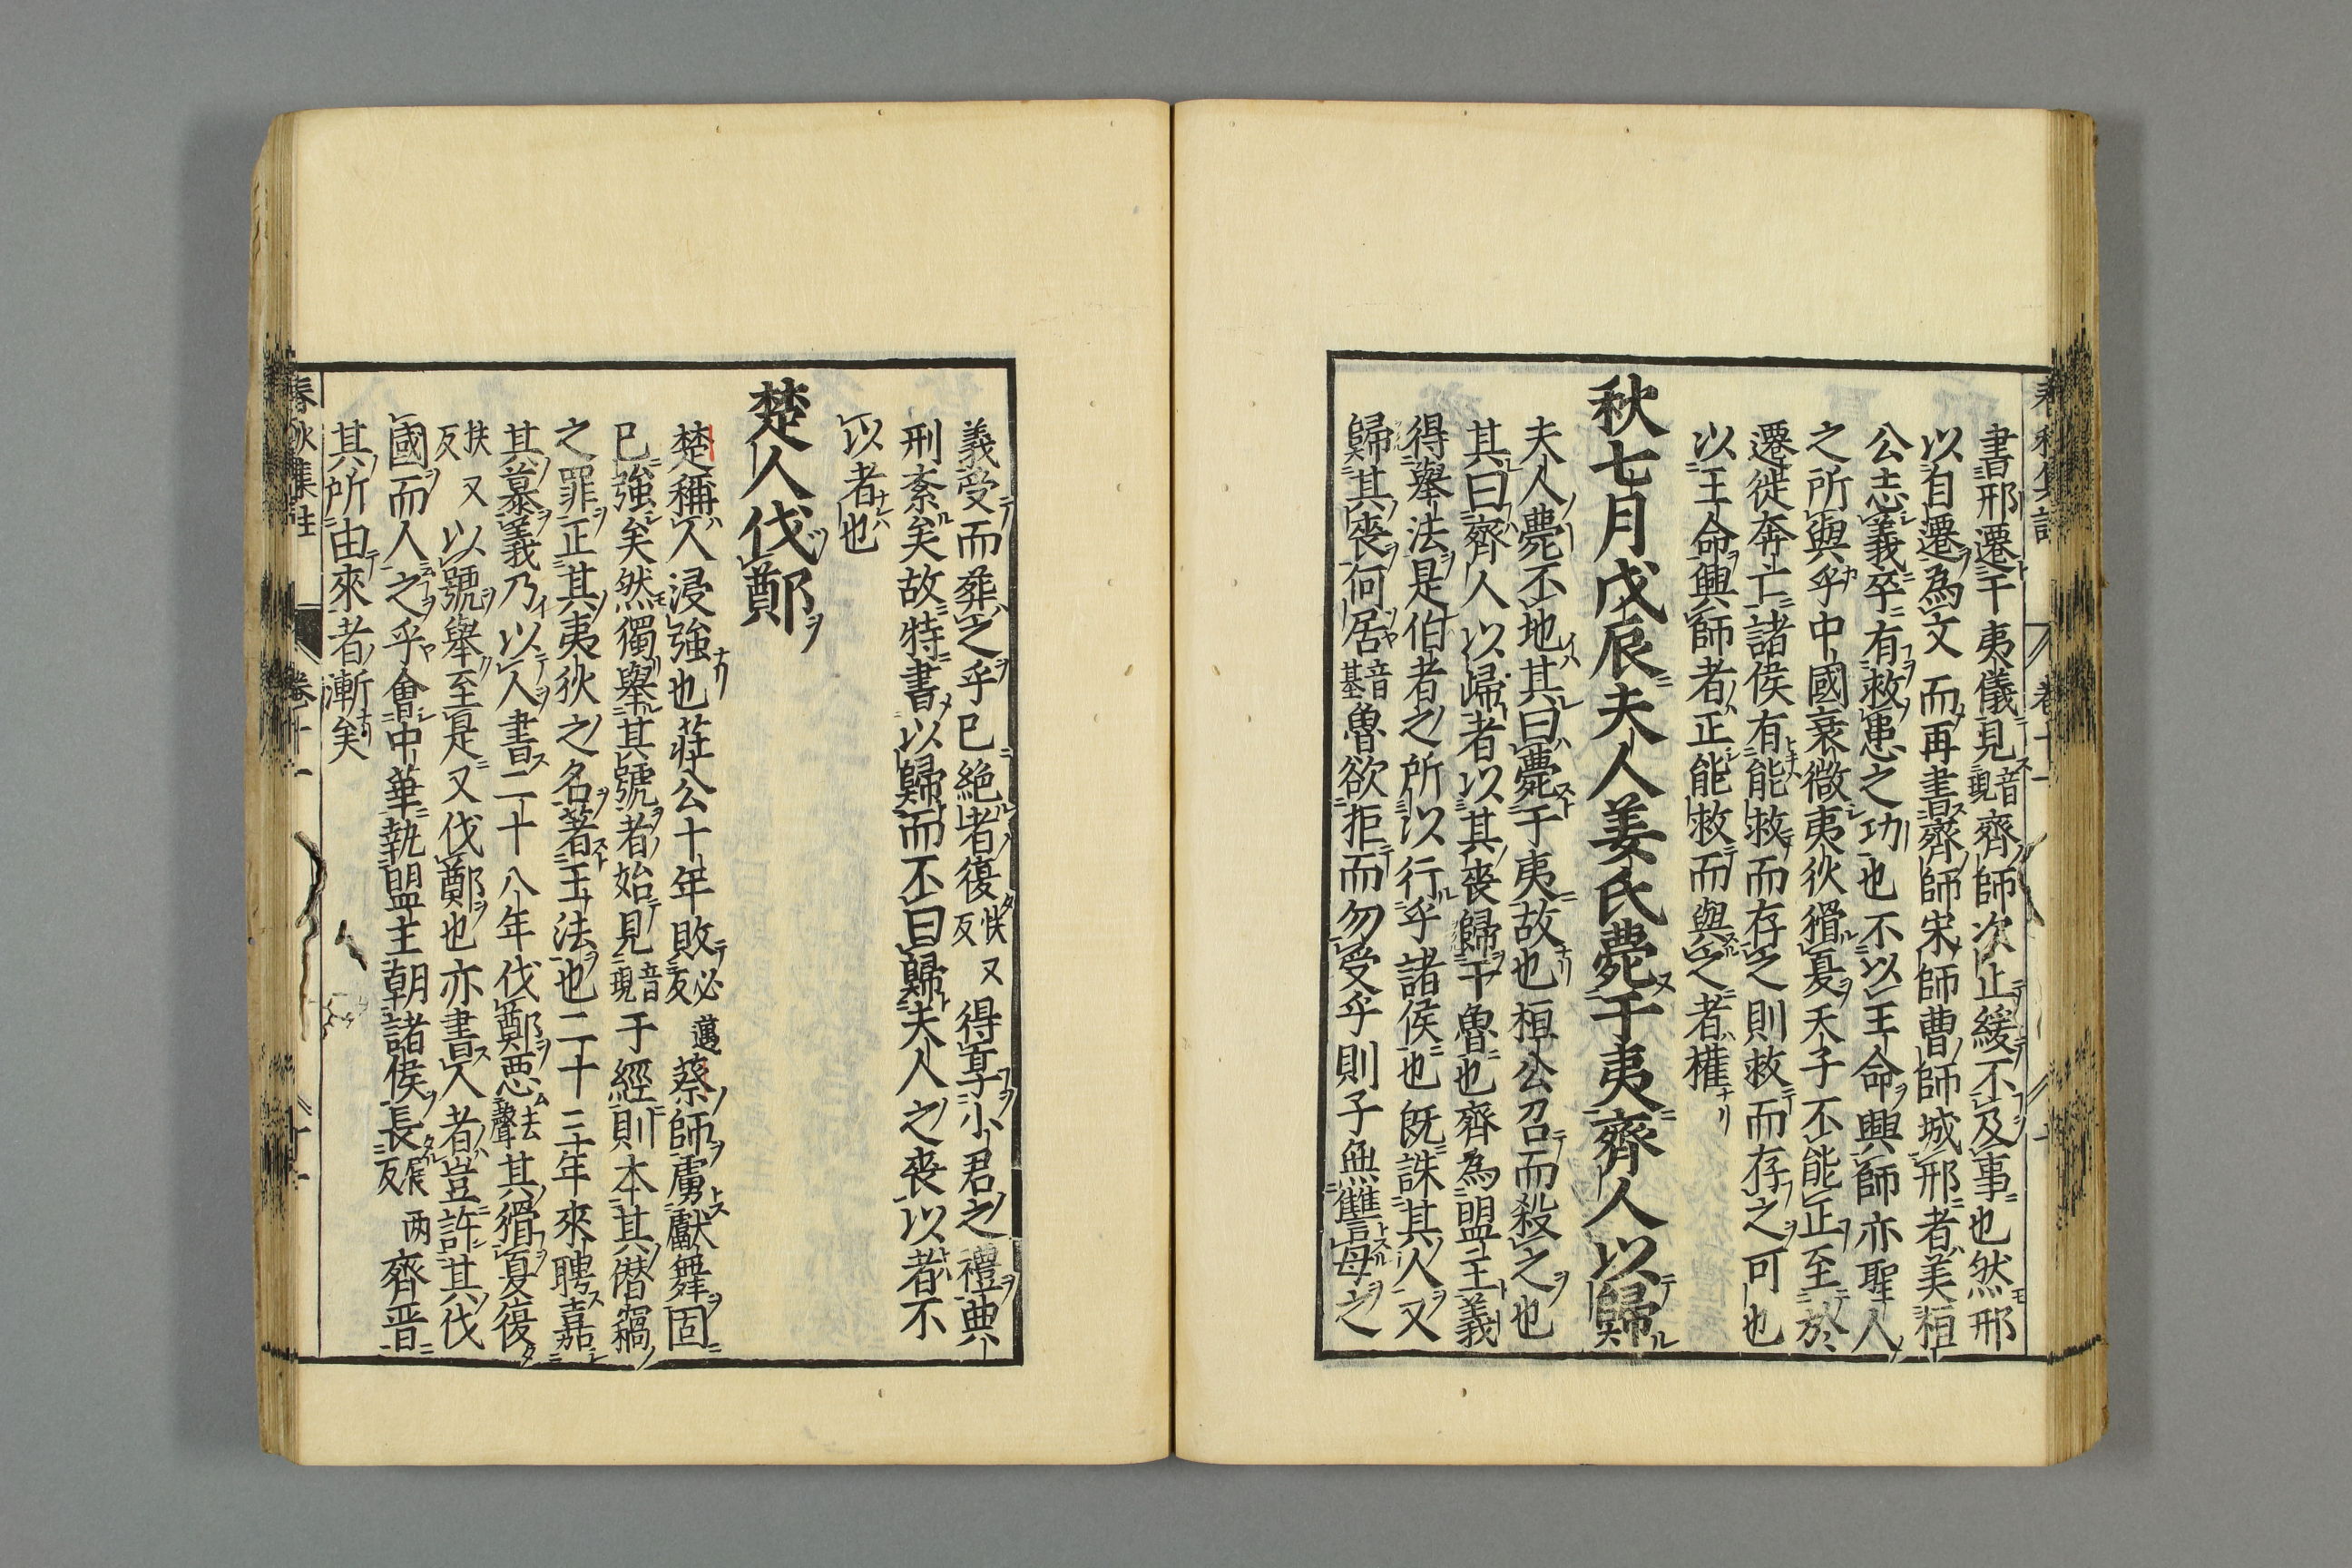 書邢遷于夷儀見音現齊師次止緩不及事也然邢
以自遷為文而再書齊師宋師曹師城邢者美桓
公志義卒有救患之功也不以王命興師亦聖人
之所與乎中國衰微夷狄猾夏天子不能正至於
遷徙奔亡諸侯有能救而存之則救而存之可也
以王命興師者正能救而與之者權
秋七月戊辰夫人姜氏薨于夷齊人以歸
夫人薨不地其曰薨于夷故也桓公召而殺之也
其曰齊人以歸者以其喪歸于魯也齊為盟主義
得舉法是伯者之所以行乎諸侯也既誅其人又
歸其喪何居音基魯欲拒而勿受乎則子無讎母之
義受而葬之乎已絕者復扶又反得享小君之禮典
刑紊矣故特書以歸而不曰歸夫人之喪以者不
以者也
楚人伐鄭
楚稱人浸強也莊公十年敗必邁反蔡師虜獻舞固
已強矣然獨舉其號者始見音現于經則本其僭竊
之罪正其夷狄之名著王法也二十三年來聘嘉
其慕義乃以人書二十八年伐鄭惡去聲其猾夏復
扶又反以號舉至是又伐鄭也亦書人者豈許其伐
國而人之乎會中華執盟主朝諸侯長展两反齊晋
其所由來者漸矣
春秋集註 卷十一 十一